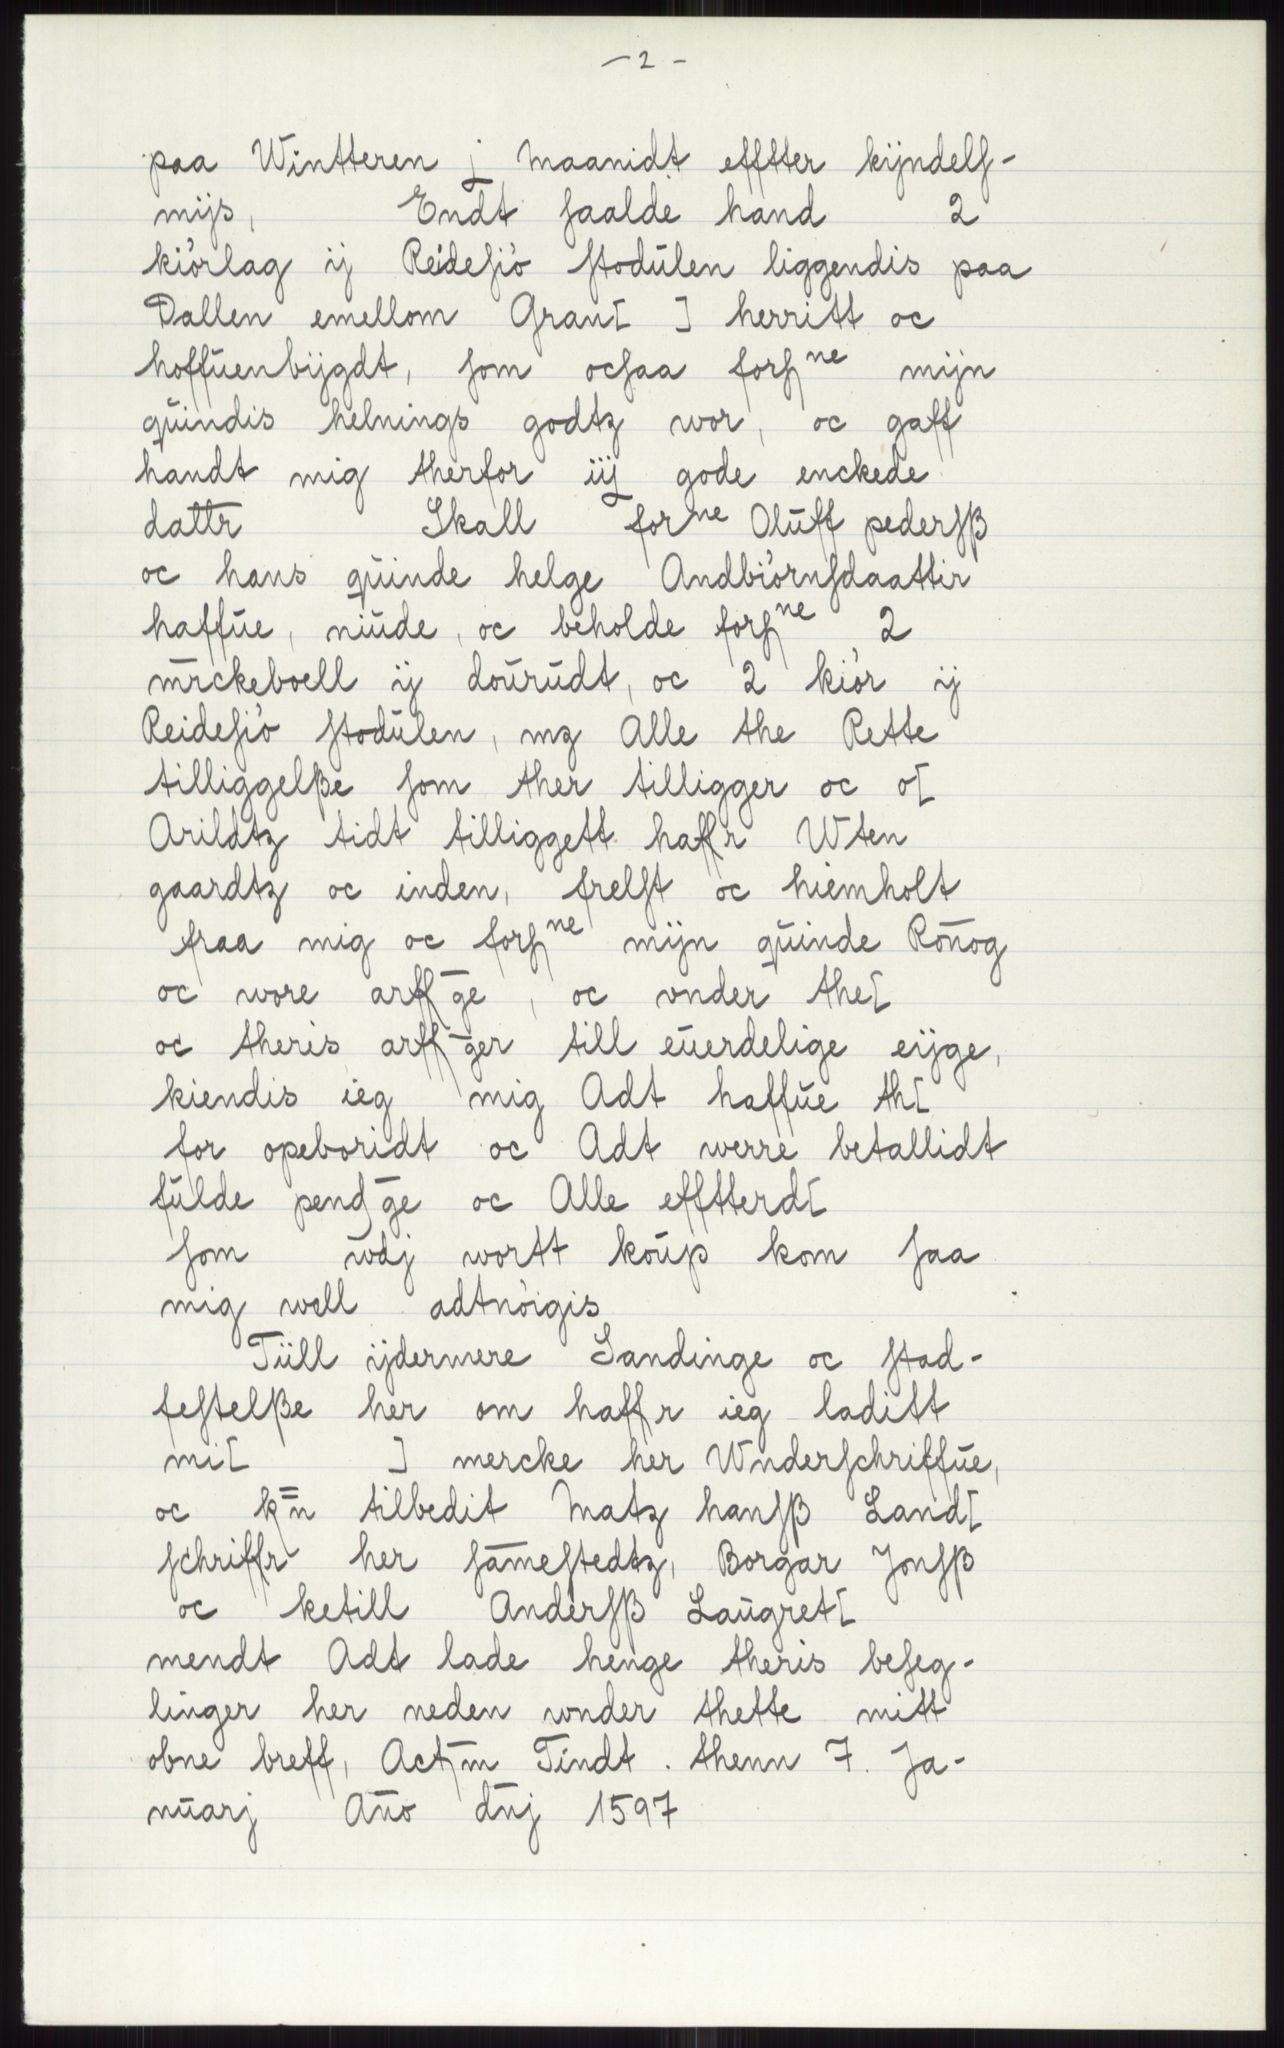 - 2 -
paa Wintteren j maanidt efftter kijndelſ-
mijs, Endt ſaalde hand 2
kiórlag ij Reideſió ſtodŭlen liggendis paa
Dallen emellom Gran[ ] herritt oc
hoffŭenbijgdt, ſom ocſaa forſⁿᵉ mijn
qŭindis helnings godtz wor, oc gaff
handt mig therfor iij gode enckede
dattr Skall forⁿᵉ Olŭff pederſß
oc hans qŭinde helge Andbiórnſdaattir
haffŭe, niŭde, oc beholde forſⁿᵉ 2
m̄rckeboell ij doŭrŭdt, oc 2 kiór ij
Reideſió ſtodŭlen, mz Alle the Rette
tilliggelße ſom ther tilligger oc o[
Arildtz tidt tilliggett haffr Wten
gaardtz oc inden, frelſt oc hiemholt
fraa mig oc forſⁿᵉ mijn qŭinde Rōnog
oc wore arff̄ge, oc vnder the[
oc theris arff̄ger till eŭerdelige eijge,
kiendis ieg mig Adt haffŭe th[
for opeboridt oc Adt werre betallidt
fŭlde pend̄ge oc Alle efftterd[
ſom wdj wortt koŭp kom ſaa
mig well adtnóigis
Tüll ijdermere Sandinge oc ſtad-
feſtelße her om haffr ieg laditt
mi[ ] mercke her Wnderſchriffŭe,
oc k̄n tilbedit Matz hanſß Land[
ſchriffr her ſam̄eſtedtz, Borgar Jonſß
oc ketill Anderſß Laŭgret[
mendt Adt lade henge theris beſeg-
linger her neden wnder thette mitt
obne breff, Act̄m Tindt. thenn 7. Ja-
nŭarj An̄o dn̄j 1597